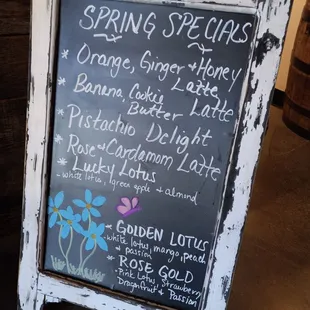 SPRING SPECIALS
* Orange, Ginger + Honey
Latte
* Banana Cookie
Butter Latte
* Pistachio Delight
* Rose + Cardamom Latte
* Lucky Lotus
- white lotus, green apple + almond
- GOLDEN LOTUS
- white lotus, mango, peach
+ passion
- ROSE GOLD
- Pink Lotus, Strawberry
Dragonfruit + Passion